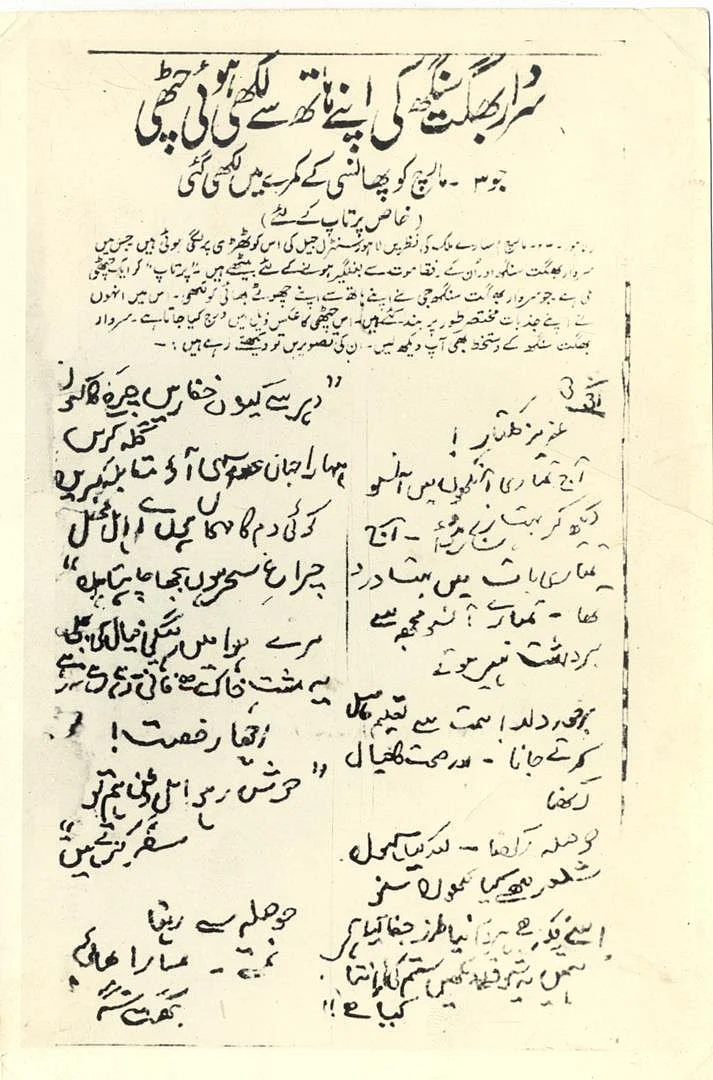 سردار بھگت سنگھ کی اپنے ہاتھ سے لکھی ہوئی چٹھی
جو ۳ ۔ مارچ کو پھانسی کے کمرے میں لکھی گئی
( خاص پرتاپ کے لئے )
مارچ سارے ملک کی نظریں لاہور سنٹرل جیل کی اس کوٹھڑی پر لگی ہوئی ہیں جس میں
سردار بھگت سنگھ اور اُن کے رفقا موت سے بغلگیر ہونے کے لئے بیٹھے ہیں ۔ "پرتاپ" کو ایک چٹھی
ملی ہے ۔ جو سردار بھگت سنگھ جی نے اپنے ہاتھ سے اپنے چھوٹے بھائی کو لکھی ۔ اس میں انہوں
نے اپنے جذبات مختصر طور پر بند کئے ہیں ۔ اس چٹھی کا عکس ذیل میں درج کیا جاتا ہے ۔ سردار
بھگت سنگھ کے دستخط بھی آپ دیکھ لیں ۔ ان کی تصویریں تو دیکھتے رہے ہیں :۔
عزیز کلتار !
آج تمہاری آنکھوں میں آنسو
دیکھ کر بہت رنج ہوا ۔ آج
تمہاری بات میں بہت درد
تھا ۔ تمہارے آنسو مجھ سے
برداشت نہیں ہوتے
برخوردار ! ہمت سے تعلیم حاصل
کرتے جانا ۔ اور صحت کا خیال
رکھنا
حوصلہ رکھنا ۔ اور کیا
اسے یہ فکر ہے ہردم نیا طرز جفا کیا ہے
ہمیں یہ شوق ہے دیکھیں ستم کی انتہا
کیا ہے !!
"دہر سے کیوں خفا رہیں چرخ کا کیوں
گلہ کریں
سارا جہاں عدو سہی آؤ مقابلہ کریں
کوئی دم کا مہماں ہوں اے اہل محفل
چراغ سحر ہوں بجھا چاہتا ہوں"
مرے ہوا میں رہیگی خیال کی بجلی
یہ مشت خاک ہے فانی رہے رہے نہ رہے
اچھا رخصت !
"خوش رہو اہل وطن ہم تو
سفر کرتے ہیں"
حوصلہ سے رہنا
نمستے ۔ تمہارا بھائی
بھگت سنگھ